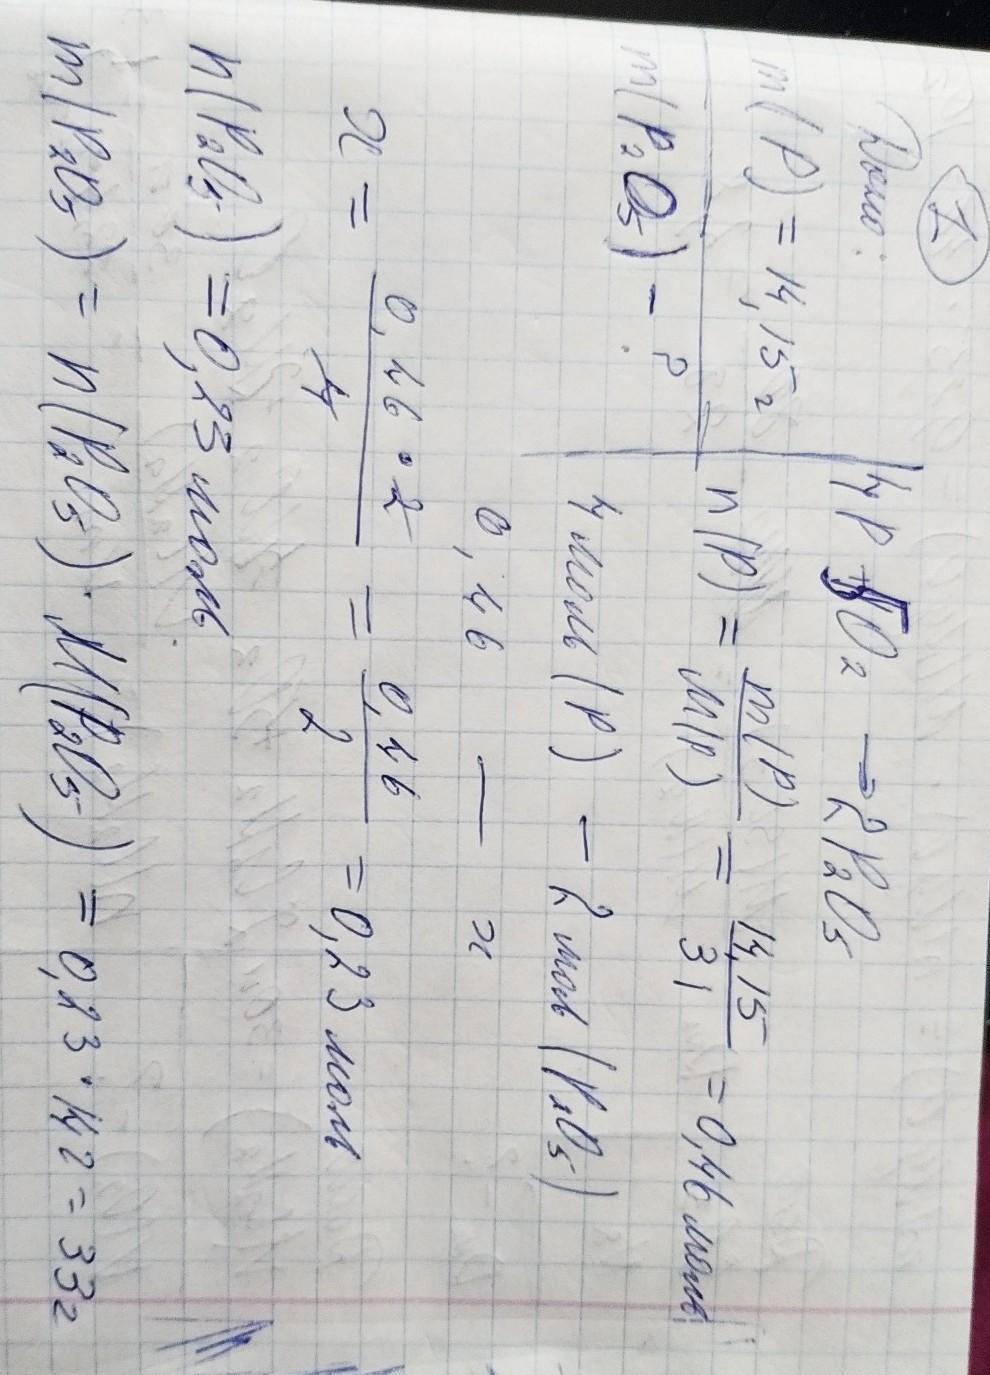 1
Дано:
m(P) = 14,15 г
m(P₂O₅) - ?
4P + 5O₂ → 2P₂O₅
n(P) = m(P) / M(P) = 14,15 / 31 = 0,46 моль
4 моль (P) – 2 моль (P₂O₅)
0,46 — x
x = 0,46 · 2 / 4 = 0,46 / 2 = 0,23 моль
n(P₂O₅) = 0,23 моль
m(P₂O₅) = n(P₂O₅) · M(P₂O₅) = 0,23 · 142 = 33 г